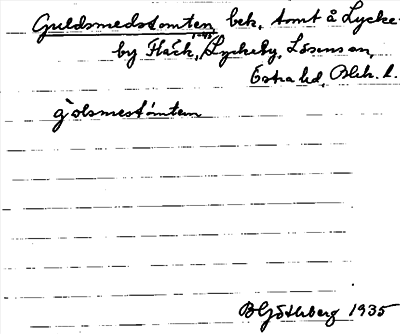 Guldsmedstomten, bek. tomt å Lycke-
by Fläck, 1-45 Lyckeby, Lösens sn,
Östra hd, Blek. l.
gòlsmestómten
B Göthberg 1935